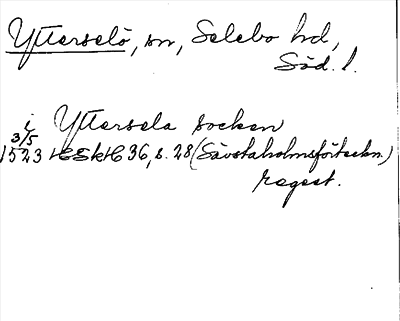 Ytterselö, sn, Selebo hd,
Söd. l.
i Yttersela socken
3/5
1523 HSkH 36, s. 28 (Sävstaholmsförteckn.)
regest.